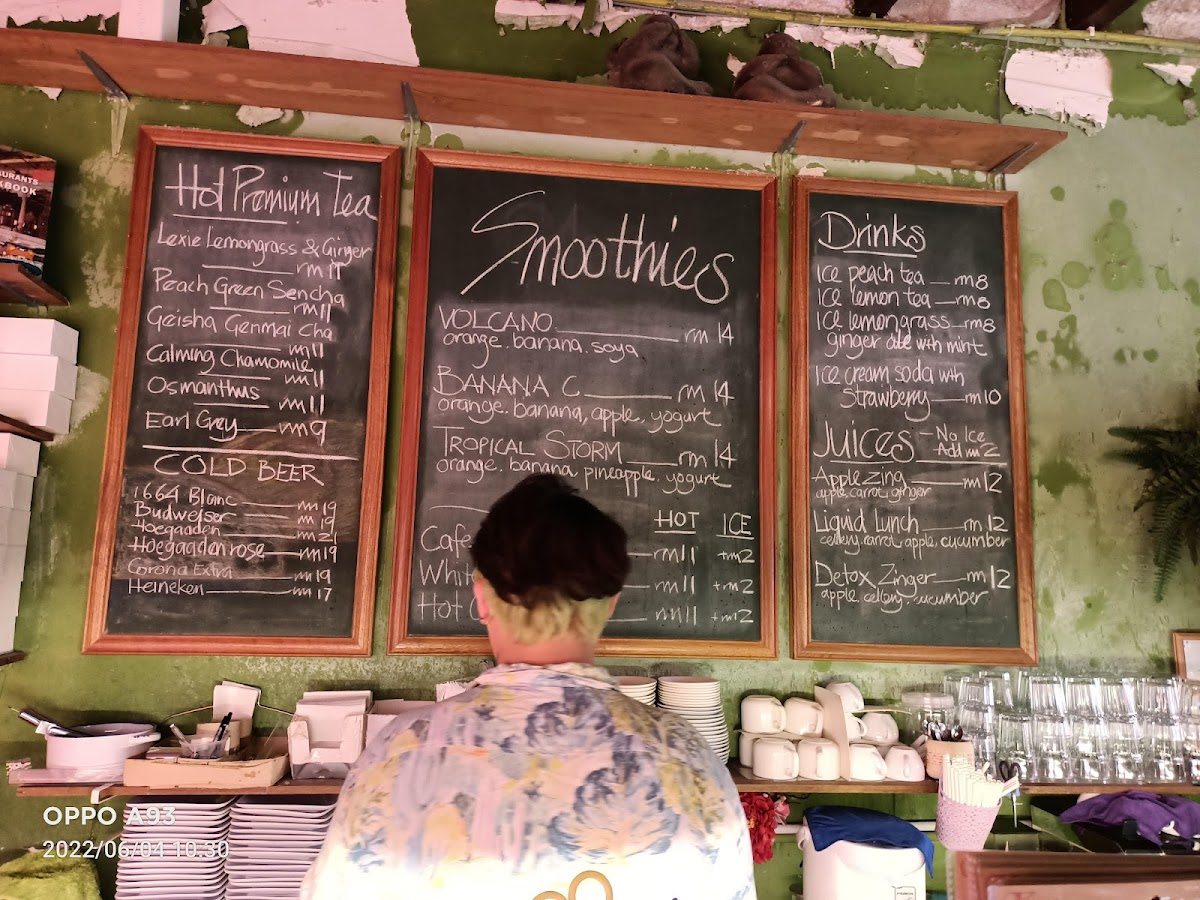 URANTS
KBOOK
Hot Premium Tea
Lexie Lemongrass & Ginger
rm 11
Peach Green Sencha
rm 11
Geisha Genmai Cha
rm 11
Calming Chamomile
rm 11
Osmanthus
rm 11
Earl Grey rm 9
COLD BEER
1664 Blanc rm 19
Budweiser rm 19
Hoegaaden rm 21
Hoegaaden rose rm 19
Corona Extra rm 19
Heineken rm 17
Smoothies
VOLCANO rm 14
orange. banana. soya
BANANA C. rm 14
orange. banana, apple, yogurt
TROPICAL STORM rm 14
orange. banana, pineapple, yogurt
HOT ICE
Cafe rm 11 +rm 2
White rm 11 +rm 2
Hot rm 11 +rm 2
Drinks
Ice peach tea rm 8
Ice lemon tea rm 8
Ice lemongrass rm 8
ginger ale with mint
Ice cream soda with
Strawberry rm 10
JUICES - No Ice
Add rm 2
Apple Zing rm 12
apple, carrot, ginger
Liquid Lunch rm 12
cellery, carrot, apple, cucumber
Detox Zinger rm 12
apple, cellery, cucumber
OPPO A93
2022/06/04 10:30